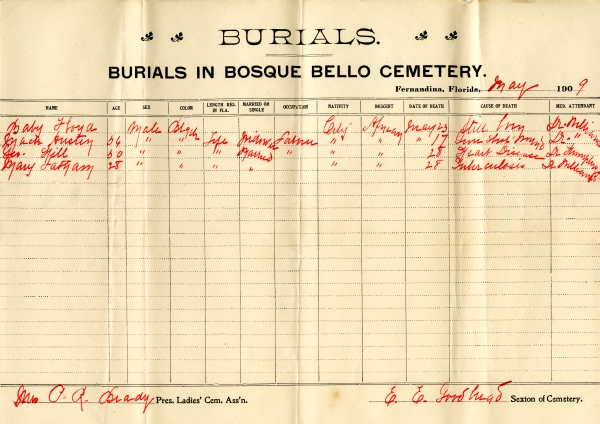 BURIALS.
BURIALS IN BOSQUE BELLO CEMETERY.
Fernandina, Florida, May 1909
NAME AGE SEX COLOR LENGTH RES. IN FLA. MARRIED OR SINGLE OCCUPATION NATIVITY DESCENT DATE OF DEATH CAUSE OF DEATH MED. ATTENDANT
Baby Floyd Male Black City African May 23 Still born Dr. Williams
36 " " Life Widow Laborer " " " 17 Gun Shot Wound Dr.
Geo. Hill 50 " " " Married " " " 28 Heart Disease Dr. Humphreys
Mary Latham 28 " " " " " " 28 Tuberculosis Dr. Williams
Mrs. P. R. Brady Pres. Ladies' Cem. Ass'n. E. E. Sexton of Cemetery.